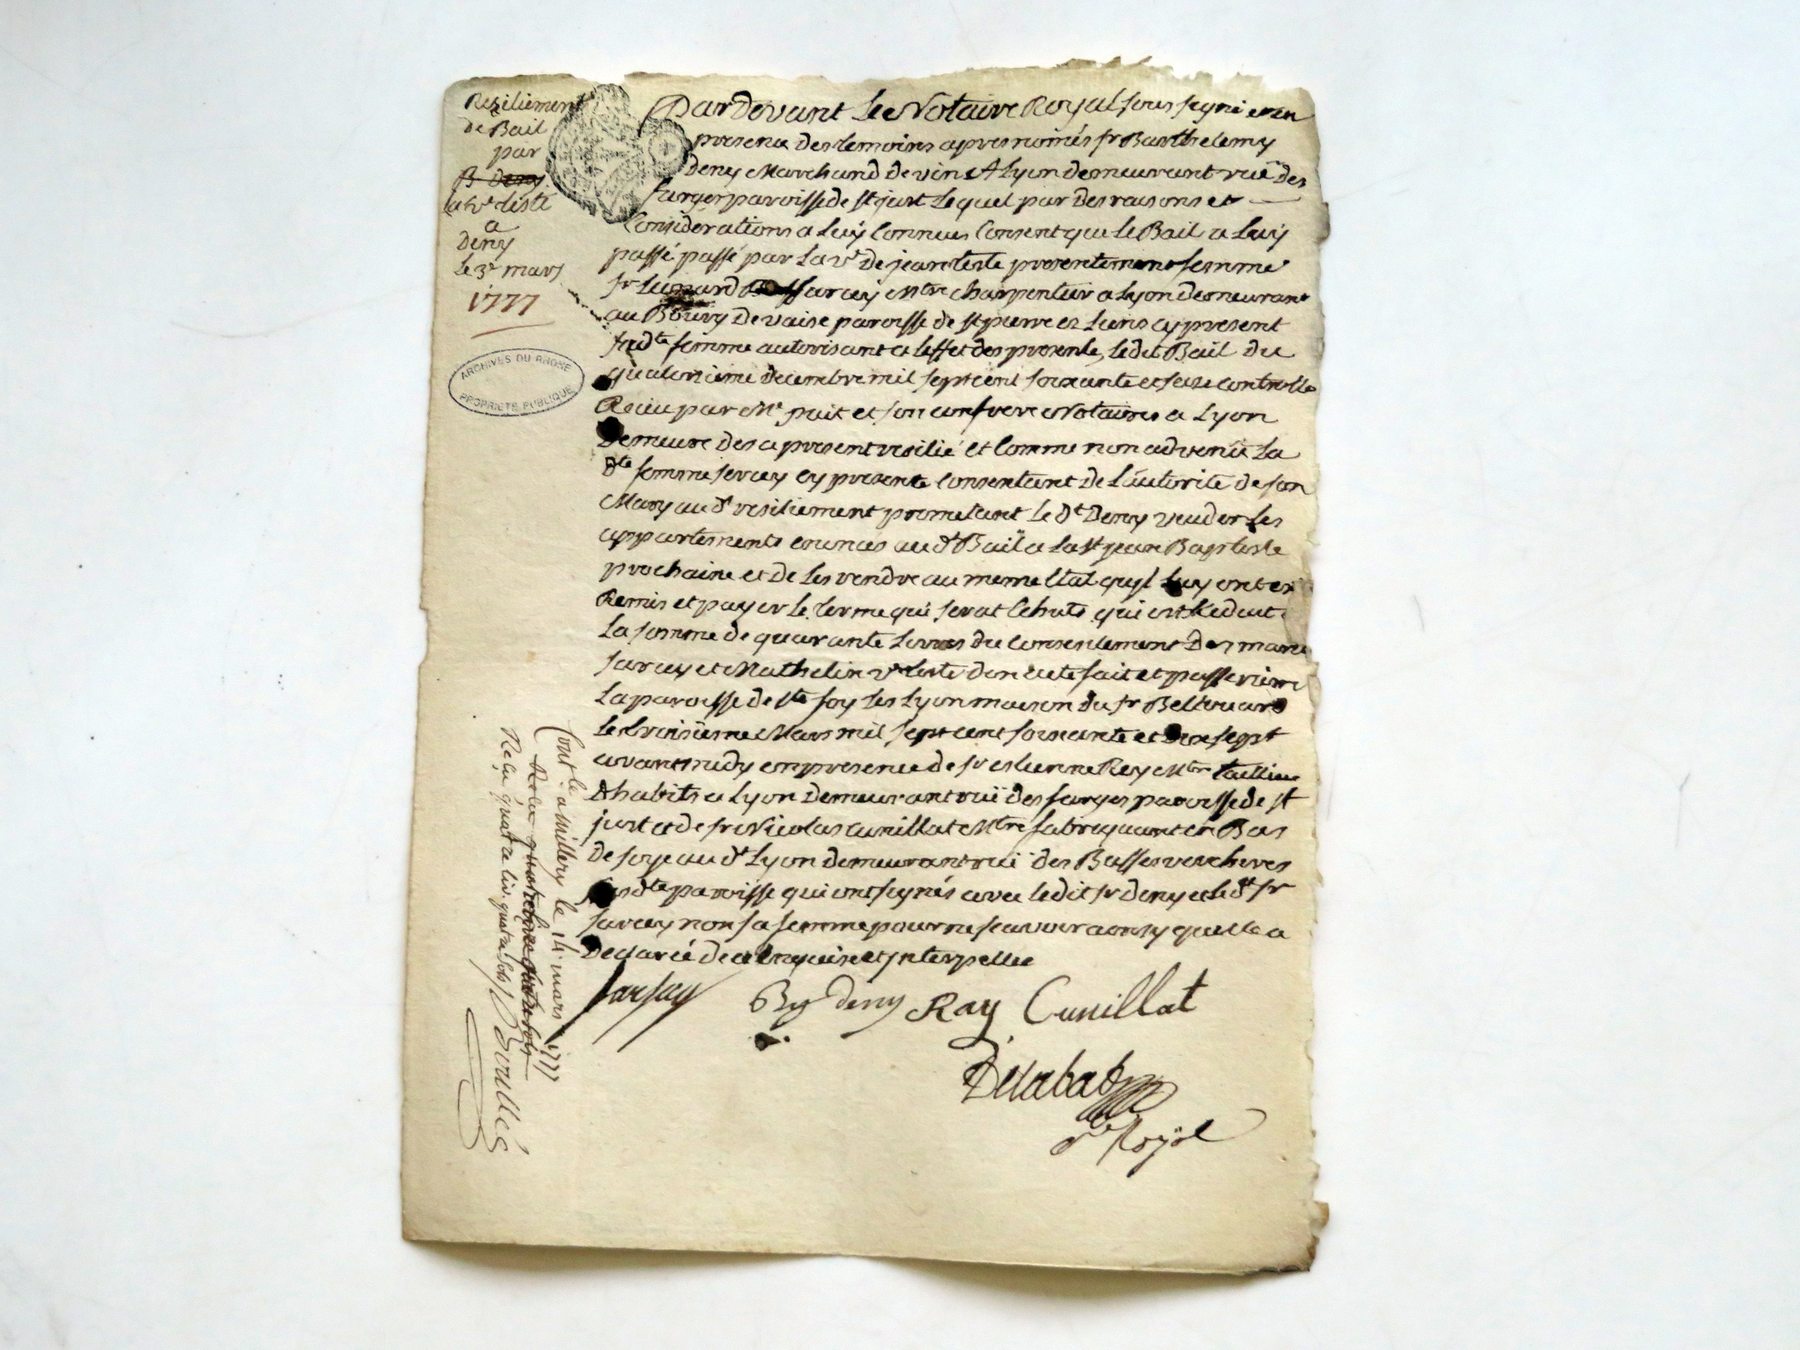 Resiliement
de Bail
par
B Deny
la ve teste
a
Deny
le 3e mars
1777
ARCHIVES DU RHONE
PROPRIETE PUBLIQUE
Pardevant Le Notaire Royal sous signé et en
presence des temoins apres només sr Barthelemy
Deny Marchand de vins A Lyon demeurant ruë des
farges paroisse de st just Lequel par des raisons et
Considerations a Luy Connues Consent que Le Bail a Luy
passé passé par La ve de jean teste presentement femme
sr Leonard Sarcey Mtre charpentier a Lyon demeurant
au Bourg de vaise paroisse de st pierre es Liens cy present
sa dte femme autorisant a leffet des presente, ledit Bail du
quatorzieme decembre mil sept cent soixante et seze controllé
Recu par Me pait et son confrere Notaires a Lyon
Demeure des a present resilié et Comme non advenü La
dte femme sercey cy presente Consentant de L'autorite de son
Mary au dt resiliement prometant Le dt Deny vuider Les
appartements enoncés au dt Bail a La st jean Baptiste
prochaine et de Les rendre au meme Etat quyl Luy ont eté
Remis et payer Le terme qui serat Echute qui est Reduit a
La somme de quarante Livres du Consentement Des mariés
sarcey et Mathelin ve teste dont acte fait et passe riere
La paroisse de ste foy Les Lyon maison du sr Belloüard
Le troisieme Mars mil sept cent soixante et Dix sept
avant midy en presence de sr estienne Rey Mtre tallieur
d'habits a Lyon Demeurant ruë des farges paroisse de st
just et de sr Nicolas Cunillat Mtre fabriquant en Bas
de soye au dt Lyon demeurant ruë des Basses vercheres
sus dte paroisse qui ont signés avec ledit sr deny et le dt sr
sarcey non sa femme pour ne scavoir ainsy quelle a
Declaré de ce Enquise et jnterpellée
sarsay By deny Ray Cunillat
Delabat
re Royal
Cont.lé a Millery le 14 mars 1777
Reçu quatre livres quatre sols
Reçu quatre liv. quatre sols